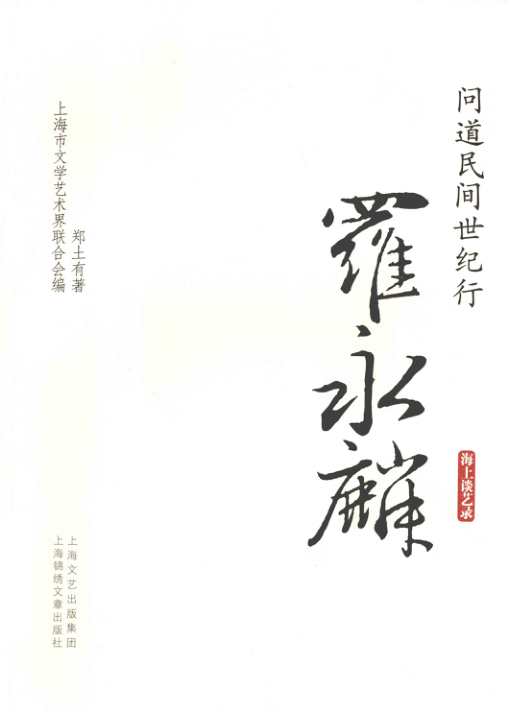 问道民间世纪行
羅永麟
海上谈艺录
郑土有著
上海市文学艺术界联合会编
上海文艺出版集团
上海锦绣文章出版社